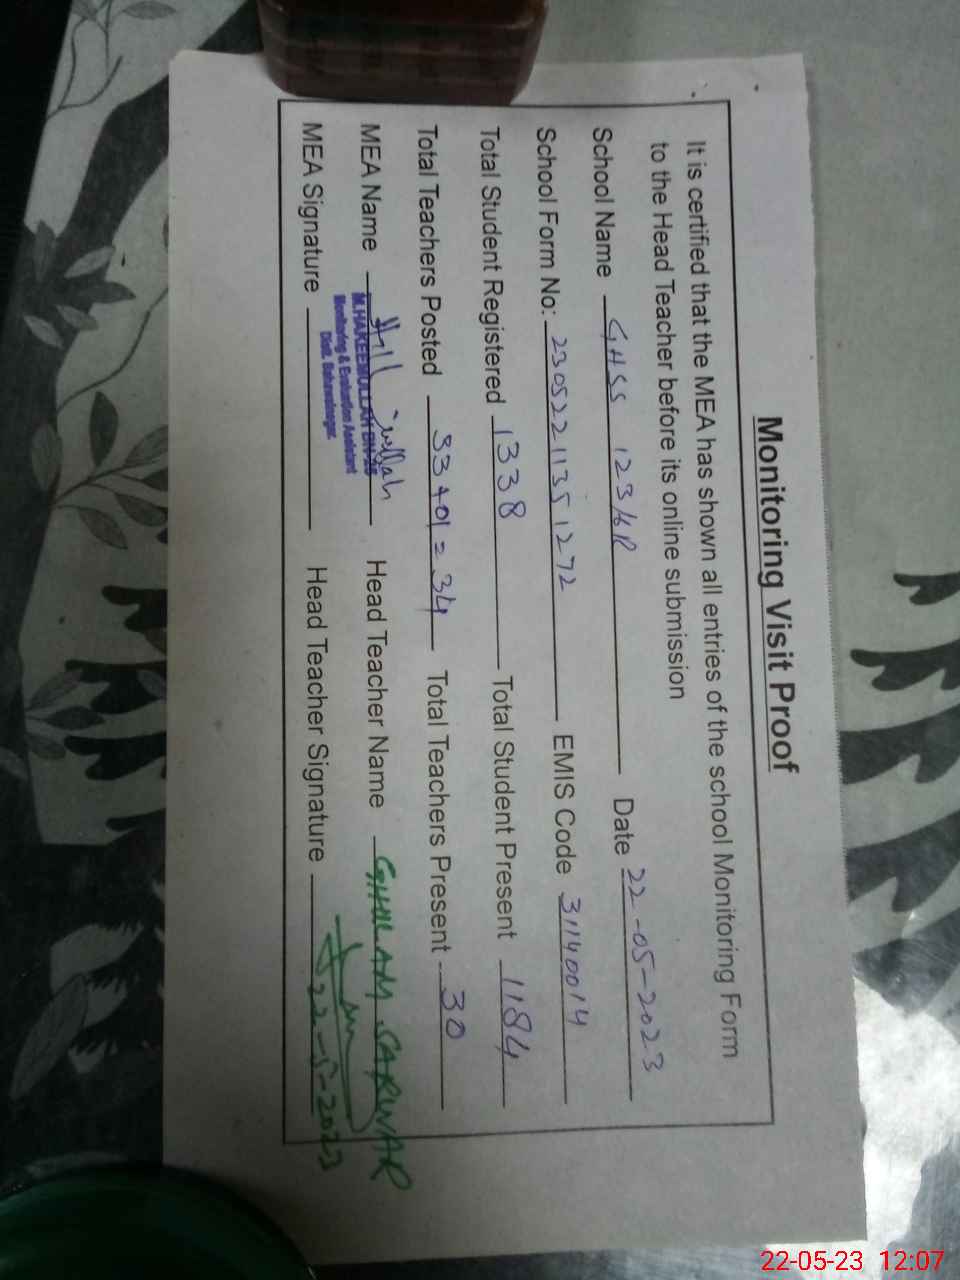 Monitoring Visit Proof
It is certified that the MEA has shown all entries of the school Monitoring Form
to the Head Teacher before its online submission
School Name GHSS 123/6R Date 22-05-2023
School Form No: 23052211351272 EMIS Code 31140014
Total Student Registered 1338 Total Student Present 1184
Total Teachers Posted 33+01=34 Total Teachers Present 30
MEA Name Head Teacher Name GHULAM SARWAR
M.HAKEEMULLAH
Monitoring & Evaluation Assistant
Distt. Bahawalnagar.
MEA Signature Head Teacher Signature 22-5-2023
22-05-23 12:07